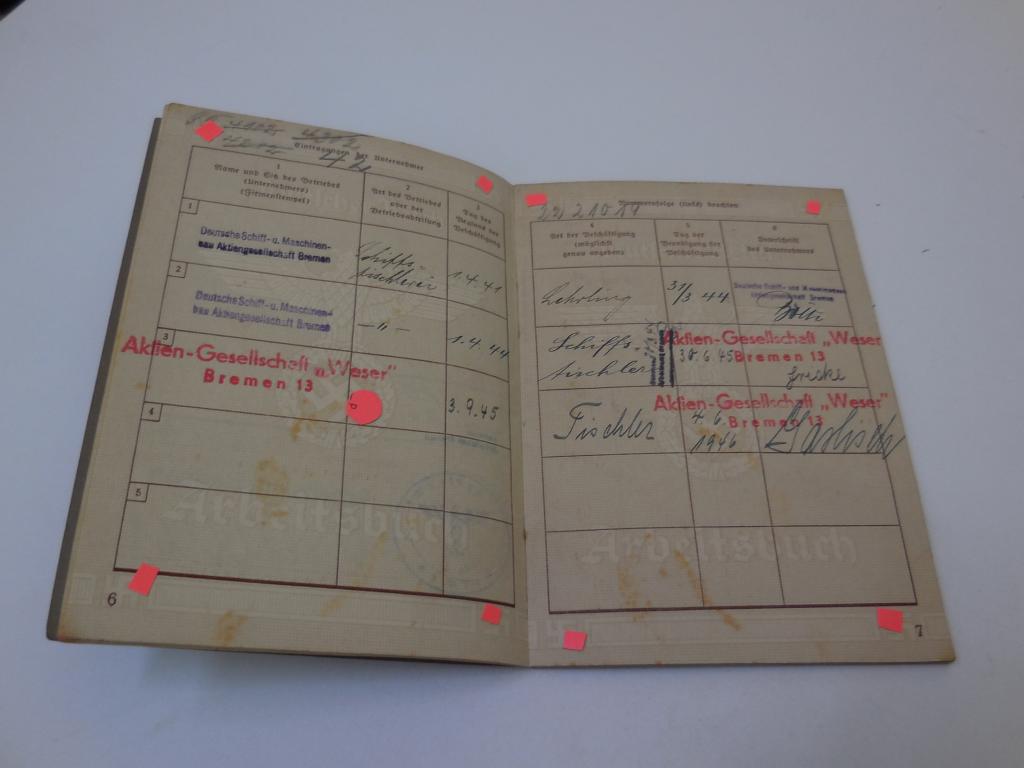 4202
42
Eintragungen der Unternehmer
1
Name und Sitz des Betriebes
(Unternehmers)
(Firmenstempel)
2
Art des Betriebes
oder der
Betriebsabteilung
3
Tag des
Beginns der
Beschäftigung
1
Deutsche Schiff- u. Maschinen-
bau Aktiengesellschaft Bremen
Schiffs-
tischlerei
1.4.41
2
Deutsche Schiff- u. Maschinen-
bau Aktiengesellschaft Bremen
-"-
1.4.44
3
Aktien-Gesellschaft „Weser"
Bremen 13
3.9.45
4
5
Arbeitsbuch
6
Nummernfolge (links) beachten
22/21017
4
Art der Beschäftigung
(möglichst
genau angeben)
5
Tag der
Beendigung der
Beschäftigung
6
Unterschrift
des Unternehmers
Lehrling
31/3 44
Deutsche Schiff- und Maschinenbau
Aktiengesellschaft Bremen
Schiffs-
tischler
Aktien-Gesellschaft „Weser
30.6.45
Bremen 13
Tischler
4.6.
1946
Aktien-Gesellschaft „Weser"
Bremen 13
Arbeitsbuch
7